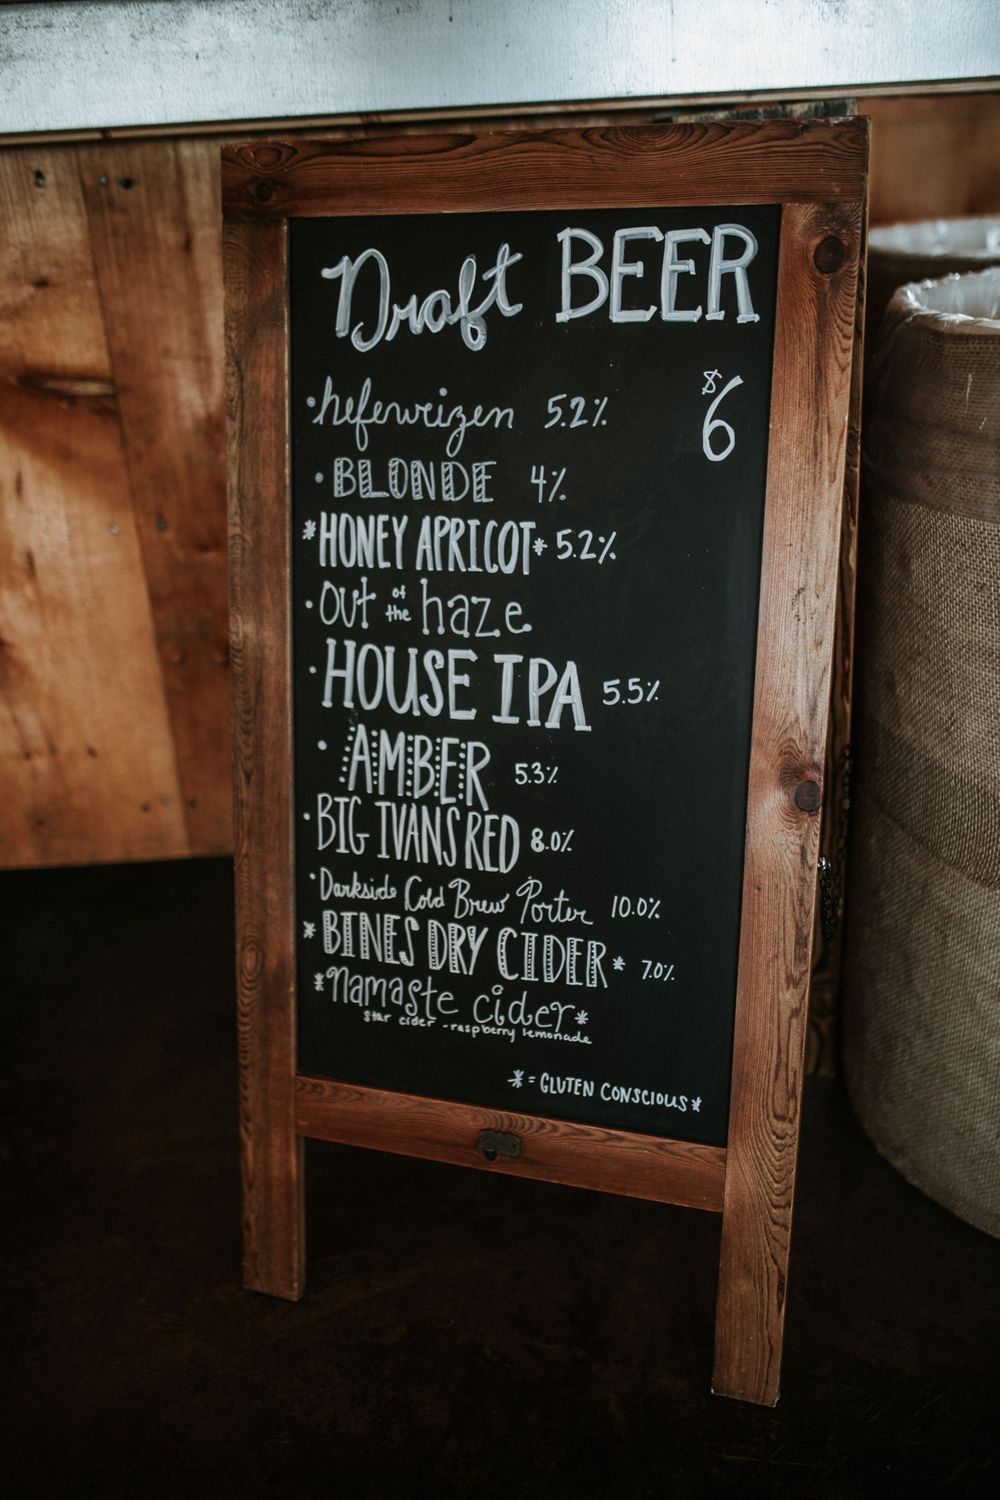 Draft BEER
$6
• hefeweizen 5.2%
• BLONDE 4%
* HONEY APRICOT * 5.2%
• out of the haze
• HOUSE IPA 5.5%
• AMBER 5.3%
• BIG IVANS RED 8.0%
• Darkside Cold Brew Porter 10.0%
* BINES DRY CIDER * 7.0%
* namaste cider *
star cider - raspberry lemonade
* = GLUTEN CONSCIOUS *